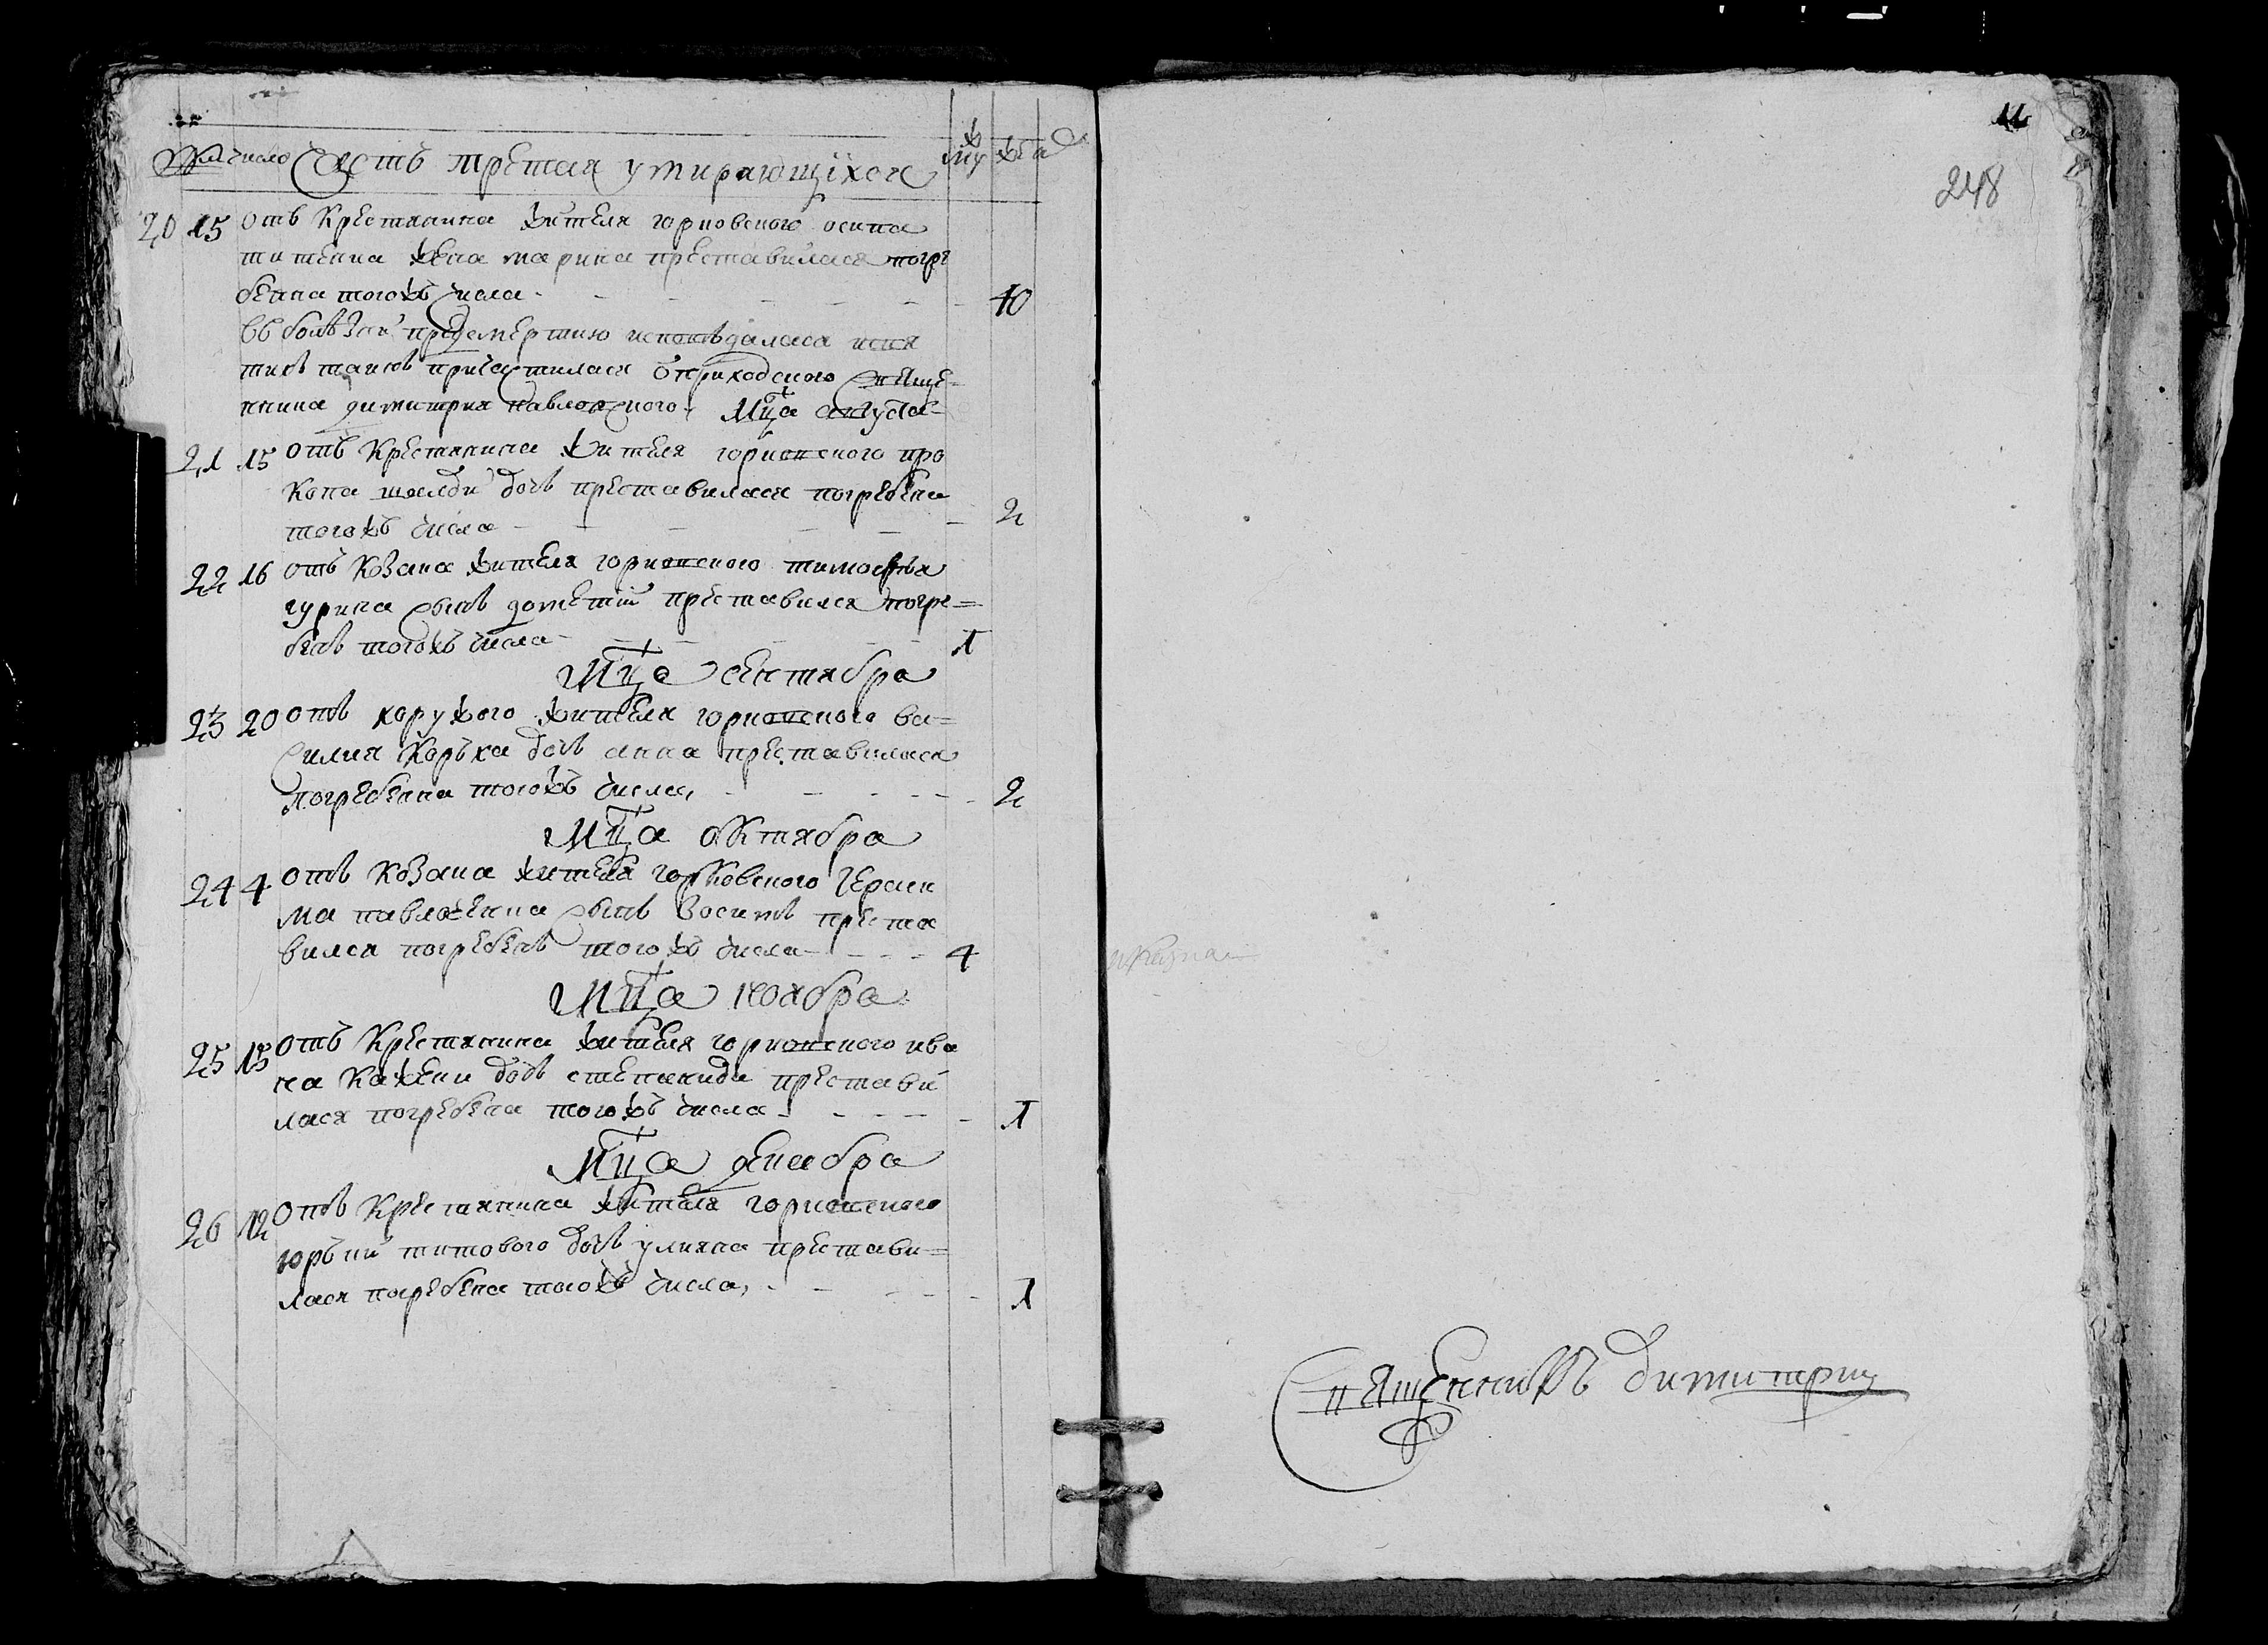 число Часть третая умирающихся
му же
20 15 отъ крестянина жителя горковского осипа
титенка жена марина преставилася погре
бенна тогожъ числа - 40
въ болѣзни предсмертию исповѣдалася исвя
тихъ таинъ причастилася отприходского свяще-
нника димитрия павловского Мца августа
21 15 отъ крестянина жителя горковского про
копа дочь преставилася погребена
тогожъ числа - 2
22 16 отъ козака жителя горковского тимофѣя
гурина сынъ дометий преставился погре=
бенъ тогожъ числа - 1
Мца сентября
23 20 отъ коружого жителя горковского ва=
силия коръха дочь анна преставилася
погребена тогожъ числа, - 2
Мца октября
24 4 отъ козака жителя горковского гераси
ма павлѣенка сынъ зосимъ преста
вился погребенъ тогожъ числа - 4
Мца ноября
25 15 отъ крестянина жителя горковского ива
на кажени дочь степанида престави
лася погребена тогожъ числа - 1
Мца декабра
26 12 отъ крестянина жителя горковского
юрьии титового дочь улияна престави=
лася погребена тогожъ числа, - 1
11
248
Священникъ Димитрий